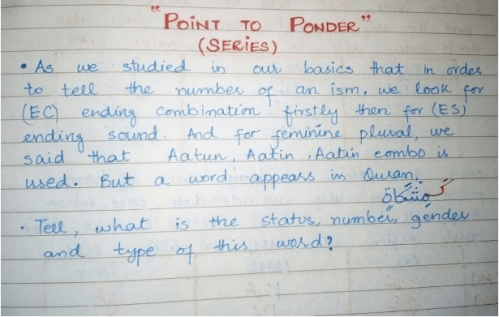 "POINT TO PONDER"
(SERIES)
• As we studied in our basics that in order
to tell the number of an ism, we look for
(EC) ending combination firstly then for (ES)
ending sound. And for feminine plural, we
said that Aatun, Aatin, Aatin combo is
used. But a word appears in Quran.
كَمِشْكَاةٍ
• Tell, what is the status, number, gender
and type of this word?